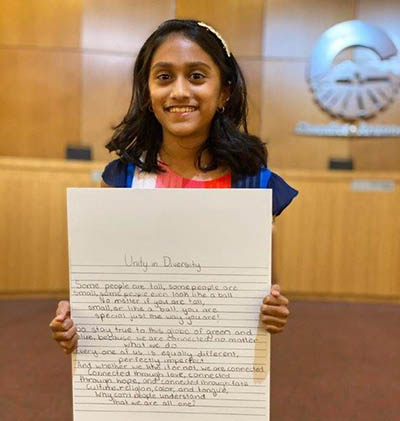 Unity in Diversity
Some people are tall, some people are
small, some people even look like a ball
No matter if you are tall,
small, or like a ball you are
special just the way you are!
So stay true to this globe of green and
blue, because we are connected no matter
what we do
Every one of us is equally different,
perfectly imperfect
And whether we like it or not, we are connected
Connected through love, connected
through hope, and connected through fate
Culture, religion, color, and tongue,
Why can't people understand
That we are all one?